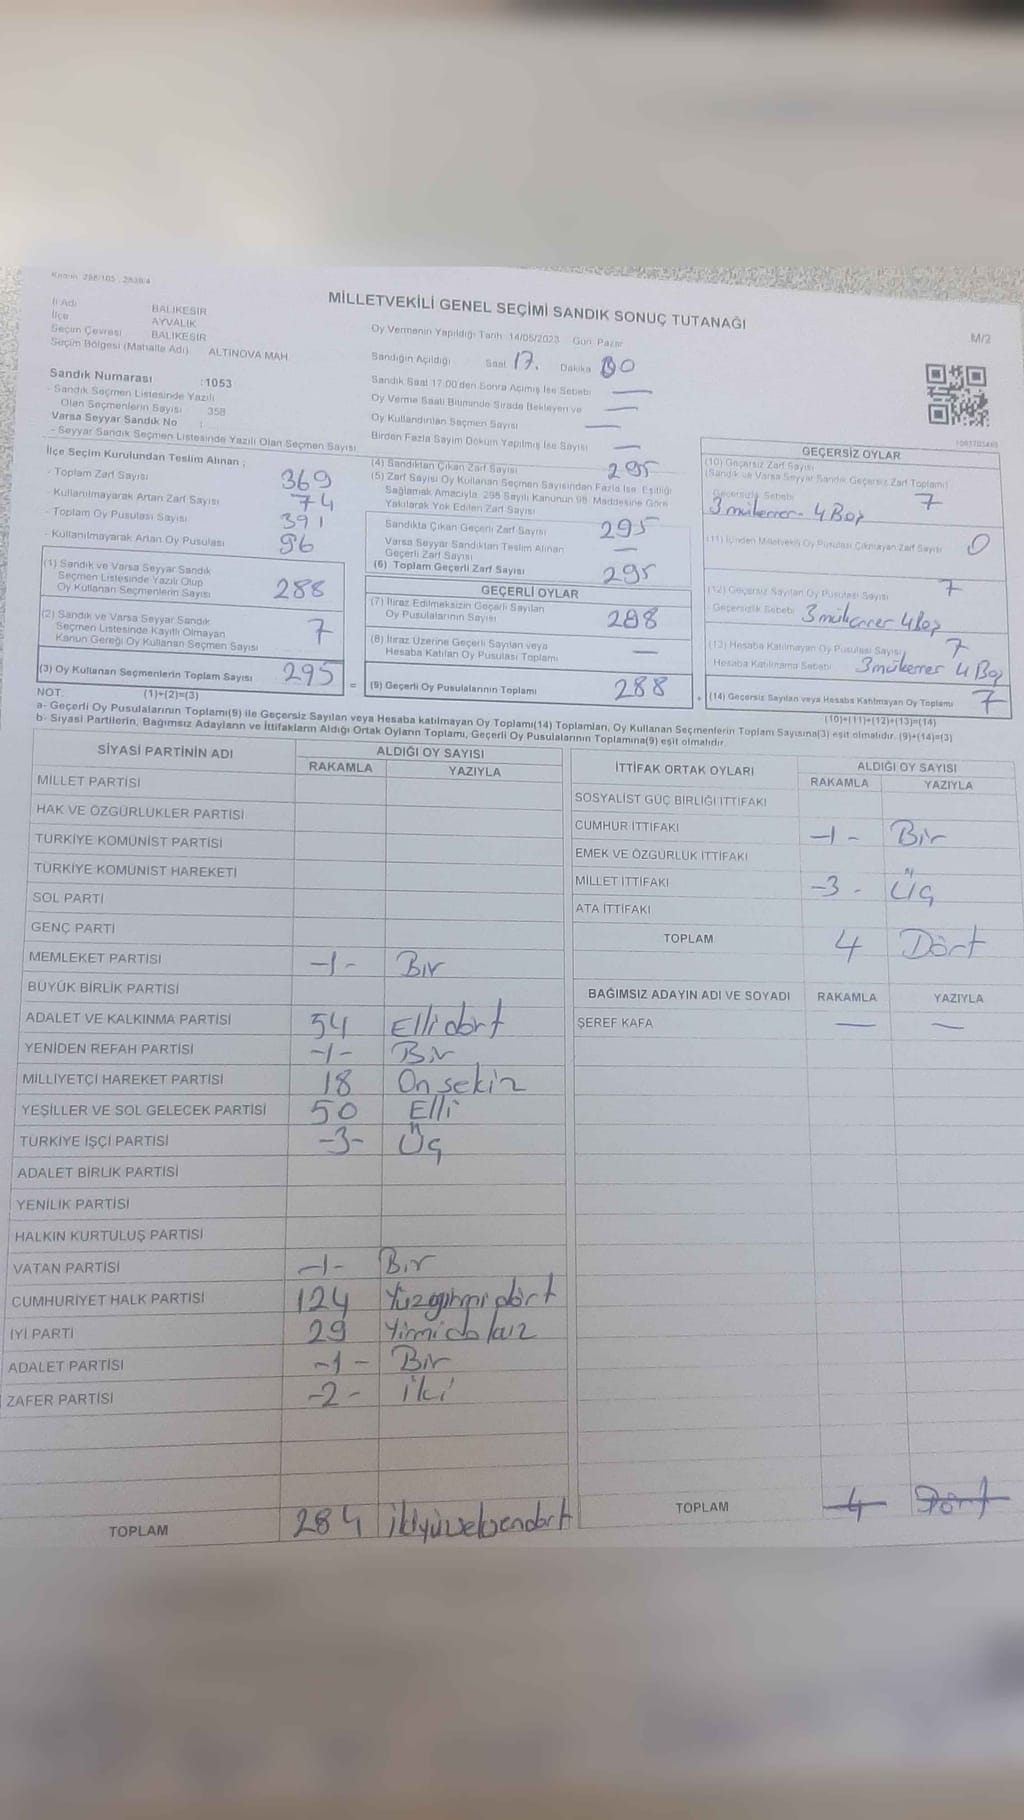 MİLLETVEKİLİ GENEL SEÇİMİ SANDIK SONUÇ TUTANAĞI
M/2
İl Adı BALIKESİR
İlçe AYVALIK
Seçim Çevresi BALIKESİR
Seçim Bölgesi (Mahalle Adı) ALTINOVA MAH.
Sandık Numarası :1053
- Sandık Seçmen Listesinde Yazılı
Olan Seçmenlerin Sayısı : 358
Varsa Seyyar Sandık No :
- Seyyar Sandık Seçmen Listesinde Yazılı Olan Seçmen Sayısı
Oy Vermenin Yapıldığı Tarih: 14/05/2023 Gün: Pazar
Sandığın Açıldığı Saat 17. Dakika 00
Sandık Saat 17:00'den Sonra Açılmış İse Sebebi —
Oy Verme Saati Bitiminde Sırada Bekleyen ve —
Oy Kullandırılan Seçmen Sayısı —
Birden Fazla Sayım Döküm Yapılmış İse Sayısı —
İlçe Seçim Kurulundan Teslim Alınan ;
- Toplam Zarf Sayısı 369
- Kullanılmayarak Artan Zarf Sayısı 74
- Toplam Oy Pusulası Sayısı 391
- Kullanılmayarak Artan Oy Pusulası 96
(1) Sandık ve Varsa Seyyar Sandık
Seçmen Listesinde Yazılı Olup
Oy Kullanan Seçmenlerin Sayısı 288
(2) Sandık ve Varsa Seyyar Sandık
Seçmen Listesinde Kayıtlı Olmayan
Kanun Gereği Oy Kullanan Seçmen Sayısı 7
(3) Oy Kullanan Seçmenlerin Toplam Sayısı 295 =
(4) Sandıktan Çıkan Zarf Sayısı 295
(5) Zarf Sayısı Oy Kullanan Seçmen Sayısından Fazla İse, Eşitliği
Sağlamak Amacıyla, 298 Sayılı Kanunun 98. Maddesine Göre
Yakılarak Yok Edilen Zarf Sayısı
Sandıkta Çıkan Geçerli Zarf Sayısı 295
Varsa Seyyar Sandıktan Teslim Alınan
Geçerli Zarf Sayısı —
(6) Toplam Geçerli Zarf Sayısı 295
GEÇERLİ OYLAR
(7) İtiraz Edilmeksizin Geçerli Sayılan
Oy Pusulalarının Sayısı 288
(8) İtiraz Üzerine Geçerli Sayılan veya
Hesaba Katılan Oy Pusulası Toplamı —
(9) Geçerli Oy Pusulalarının Toplamı 288 +
GEÇERSİZ OYLAR
(10) Geçersiz Zarf Sayısı
(Sandık ve Varsa Seyyar Sandık Geçersiz Zarf Toplamı)
Geçersizlik Sebebi 7
3 mükerrer - 4 Boş
(11) İçinden Milletvekili Oy Pusulası Çıkmayan Zarf Sayısı 0
(12) Geçersiz Sayılan Oy Pusulası Sayısı 7
Geçersizlik Sebebi 3 mükerrer 4 Boş
(13) Hesaba Katılmayan Oy Pusulası Sayısı 7
Hesaba Katılmama Sebebi 3 mükerrer 4 Boş
(14) Geçersiz Sayılan veya Hesaba Katılmayan Oy Toplamı 7
NOT: (1)+(2)=(3) (10)+(11)+(12)+(13)=(14)
a- Geçerli Oy Pusulalarının Toplamı(9) ile Geçersiz Sayılan veya Hesaba katılmayan Oy Toplamı(14) Toplamları, Oy Kullanan Seçmenlerin Toplam Sayısına(3) eşit olmalıdır. (9)+(14)=(3)
b- Siyasi Partilerin, Bağımsız Adayların ve İttifakların Aldığı Ortak Oyların Toplamı, Geçerli Oy Pusulalarının Toplamına(9) eşit olmalıdır.
SİYASİ PARTİNİN ADI ALDIĞI OY SAYISI
RAKAMLA YAZIYLA
MİLLET PARTİSİ
HAK VE ÖZGÜRLÜKLER PARTİSİ
TÜRKİYE KOMÜNİST PARTİSİ
TÜRKİYE KOMÜNİST HAREKETİ
SOL PARTİ
GENÇ PARTİ
MEMLEKET PARTİSİ -1- Bir
BÜYÜK BİRLİK PARTİSİ
ADALET VE KALKINMA PARTİSİ 54 Elli dört
YENİDEN REFAH PARTİSİ -1- Bir
MİLLİYETÇİ HAREKET PARTİSİ 18 On sekiz
YEŞİLLER VE SOL GELECEK PARTİSİ 50 Elli
TÜRKİYE İŞÇİ PARTİSİ -3- Üç
ADALET BİRLİK PARTİSİ
YENİLİK PARTİSİ
HALKIN KURTULUŞ PARTİSİ
VATAN PARTİSİ -1- Bir
CUMHURİYET HALK PARTİSİ 124 Yüzyirmi dört
İYİ PARTİ 29 Yirmi dokuz
ADALET PARTİSİ -1- Bir
ZAFER PARTİSİ -2- iki
TOPLAM 284 ikiyüzseksendört
İTTİFAK ORTAK OYLARI ALDIĞI OY SAYISI
RAKAMLA YAZIYLA
SOSYALİST GÜÇ BİRLİĞİ İTTİFAKI
CUMHUR İTTİFAKI -1- Bir
EMEK VE ÖZGÜRLÜK İTTİFAKI
MİLLET İTTİFAKI -3- Üç
ATA İTTİFAKI
TOPLAM 4 Dört
BAĞIMSIZ ADAYIN ADI VE SOYADI RAKAMLA YAZIYLA
ŞEREF KAFA — —
TOPLAM 4 Dört